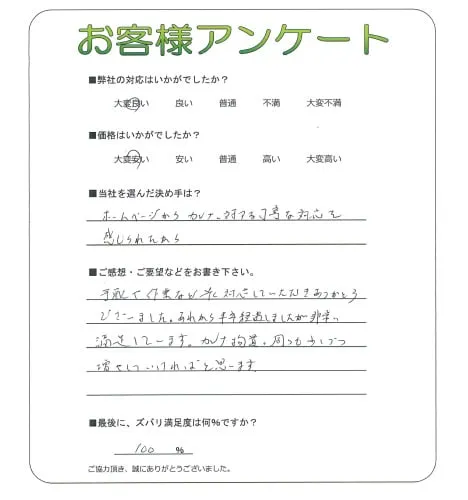 お客様アンケート
■弊社の対応はいかがでしたか？
大変良い 良い 普通 不満 大変不満
■価格はいかがでしたか？
大変安い 安い 普通 高い 大変高い
■当社を選んだ決め手は？
ホームページから 対する丁寧な対応を
感じられたから
■ご感想・ご要望などをお書き下さい。
作業など 対応していただきありがとう
ございました。あれから半年経過しましたが非常に
満足しています。 周りも少しづつ
増やしていければと思います
■最後に、ズバリ満足度は何％ですか？
100 ％
ご協力頂き、誠にありがとうございました。